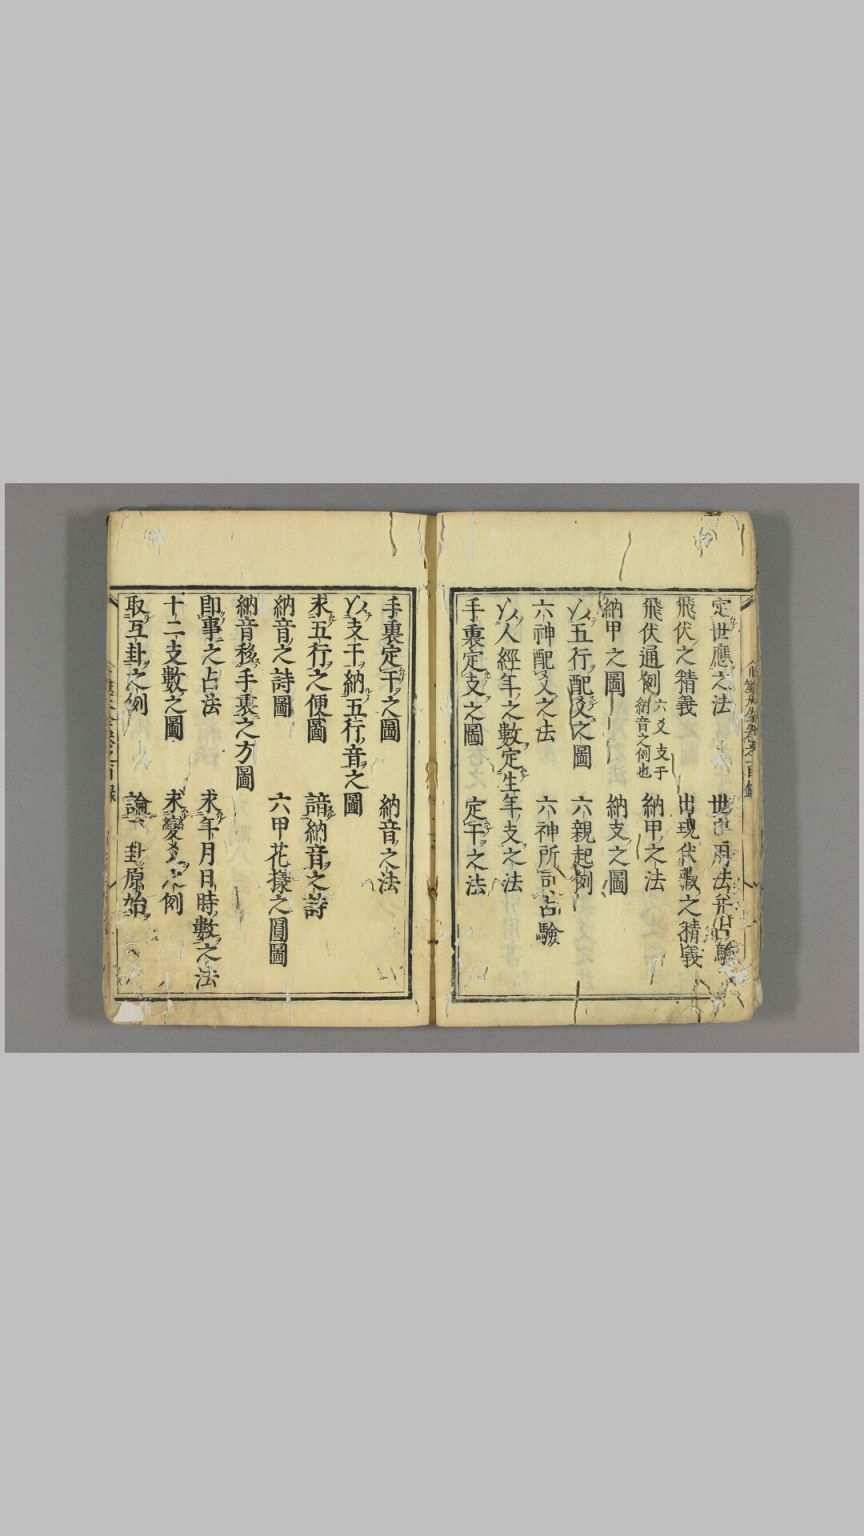 定世應之法 世 用法并占驗
飛伏之精義 出現伏 之精義
飛伏通例 六爻支干納音之例也 納甲之法
納甲之圖 納支之圖
以五行配爻之圖 六親起例
六神配爻之法 六神所司占驗
以人經年之數定生年支之法
手裏定支之圖 定干之法
手裏定干之圖 納音之法
以支干納五行音之圖
求五行之便圖 諳納音之詩
納音之詩圖 六甲花樣之圓圖
納音移手裏之方圖
即事之占法 求年月日時數之法
十二支數之圖 求變爻之例
取互卦之例 論 卦原始